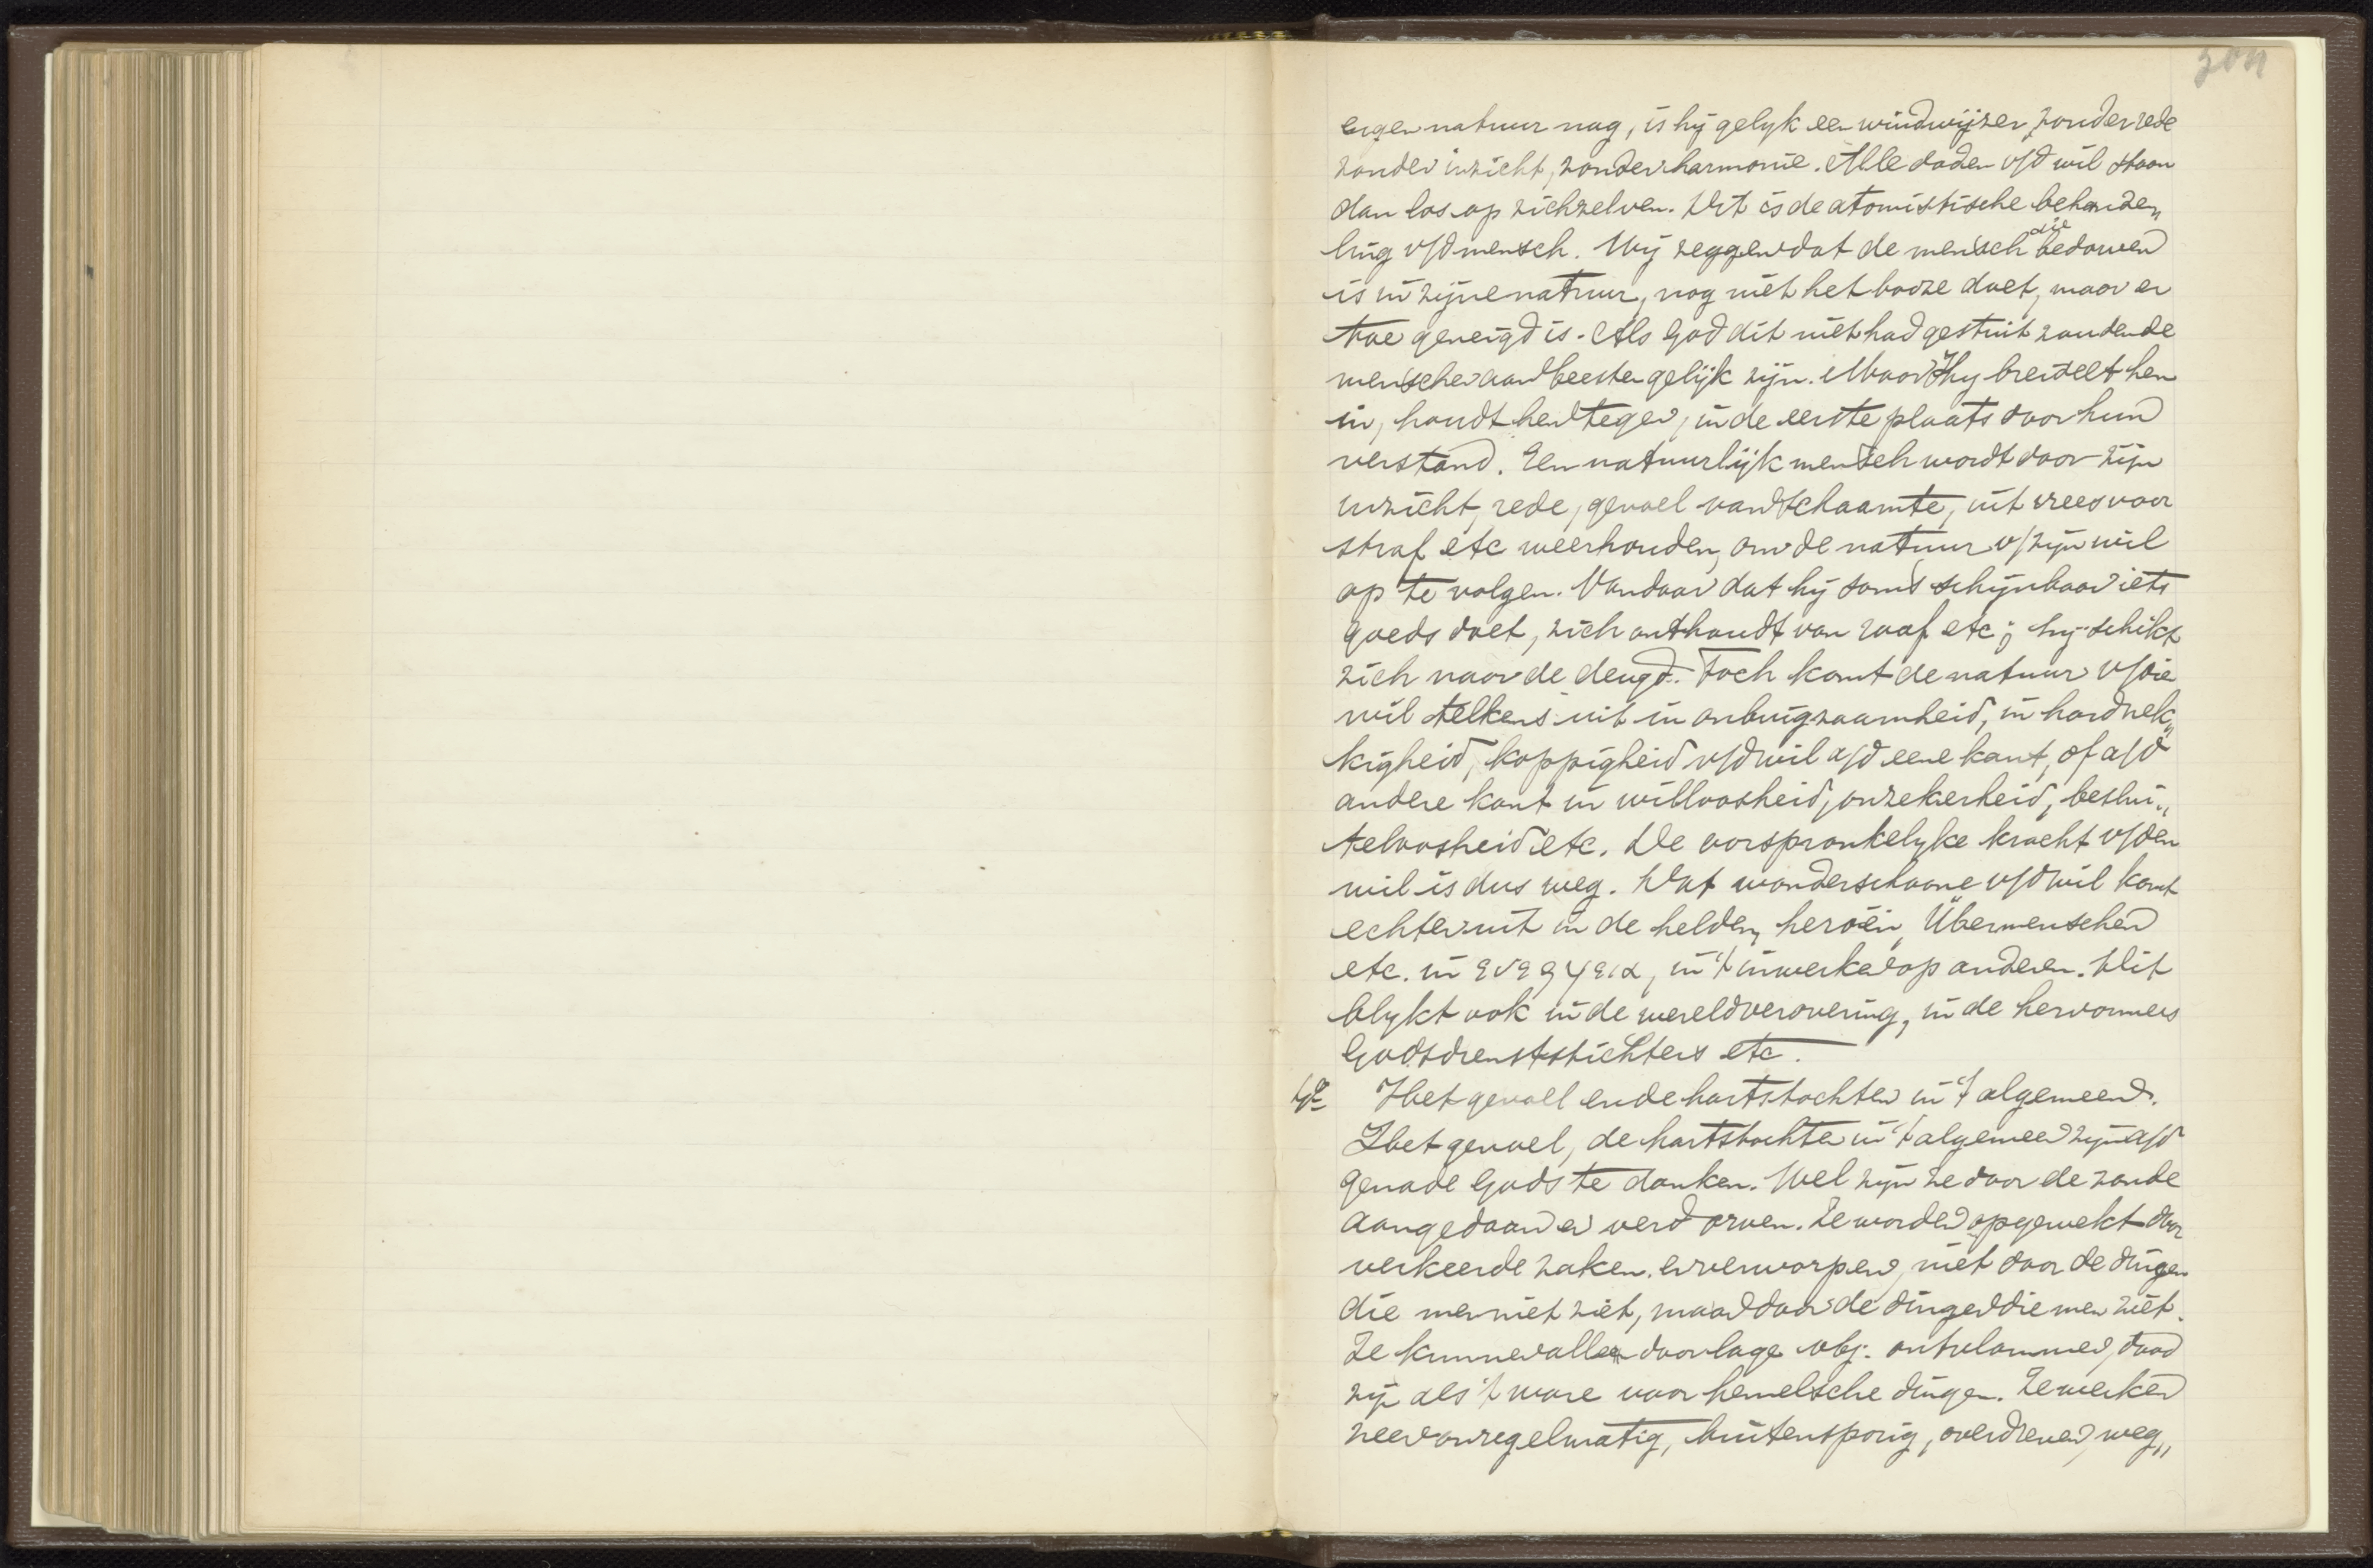 304
eigen natuur nag, is hij gelyk een windwijzer, zonder rede
zonder inzicht, zonder harmonie. Alle daden v/d wil staan
dan los op zichzelven. Dit is de atomistische behande„
ling v/d mensch. Wij zeggen dat de mensch die bedorven
is in zijne natuur, nog niet het booze doet, maar er
toe geneigd is. Als God dit niet had gestuit zouden de
menschen aan beesten gelijk zijn. Maar Hy breidelt hen
in, houdt hen tegen, in de eerste plaats door hun
verstand. Een natuurlijk mensch wordt door zijn
inzicht, rede, gevoel van schaamte, uit vrees voor
straf etc weerhouden, om de natuur v/zijn wil
op te volgen. Vandaar dat hij soms schijnbaar iets
goeds doet, zich onthoudt van roof etc; hij schikt
zich naar de deugd. Toch komt de natuur v/die
wil telkens uit in onbuigzaamheid, in hardnek„
kigheid, koppigheid v/d wil a/d eene kant, of a/d
andere kant in willoosheid, onzekerheid, beslui„
teloosheid etc. De oorspronkelyke kracht v/den
wil is dus weg. Dat wonderschoone v/d wil komt
echter uit in de helden, heroën, Übermenschen
etc. in ενεργεια, in 't inwerken op anderen. Dit
blykt ook in de wereldverovering, in de hervormers
Godsdienststichters etc.
4e Het gevoel en de hartstochten in 't algemeen.
Het gevoel, de hartstochten in 't algemeen zijn a/d
genade Gods te danken. Wel zijn ze door de zonde
aangedaan en verdorven. Ze worden opgewekt door
verkeerde zaken en verworpen, niet door de dingen
die men niet ziet, maar door de dingen die men ziet.
Ze kunnen alleen door lage obj. ontvlammen, dood
zijn als 't ware voor hemelsche dingen. Ze werken
zeer onregelmatig, buitensporig, overdreven, weg„